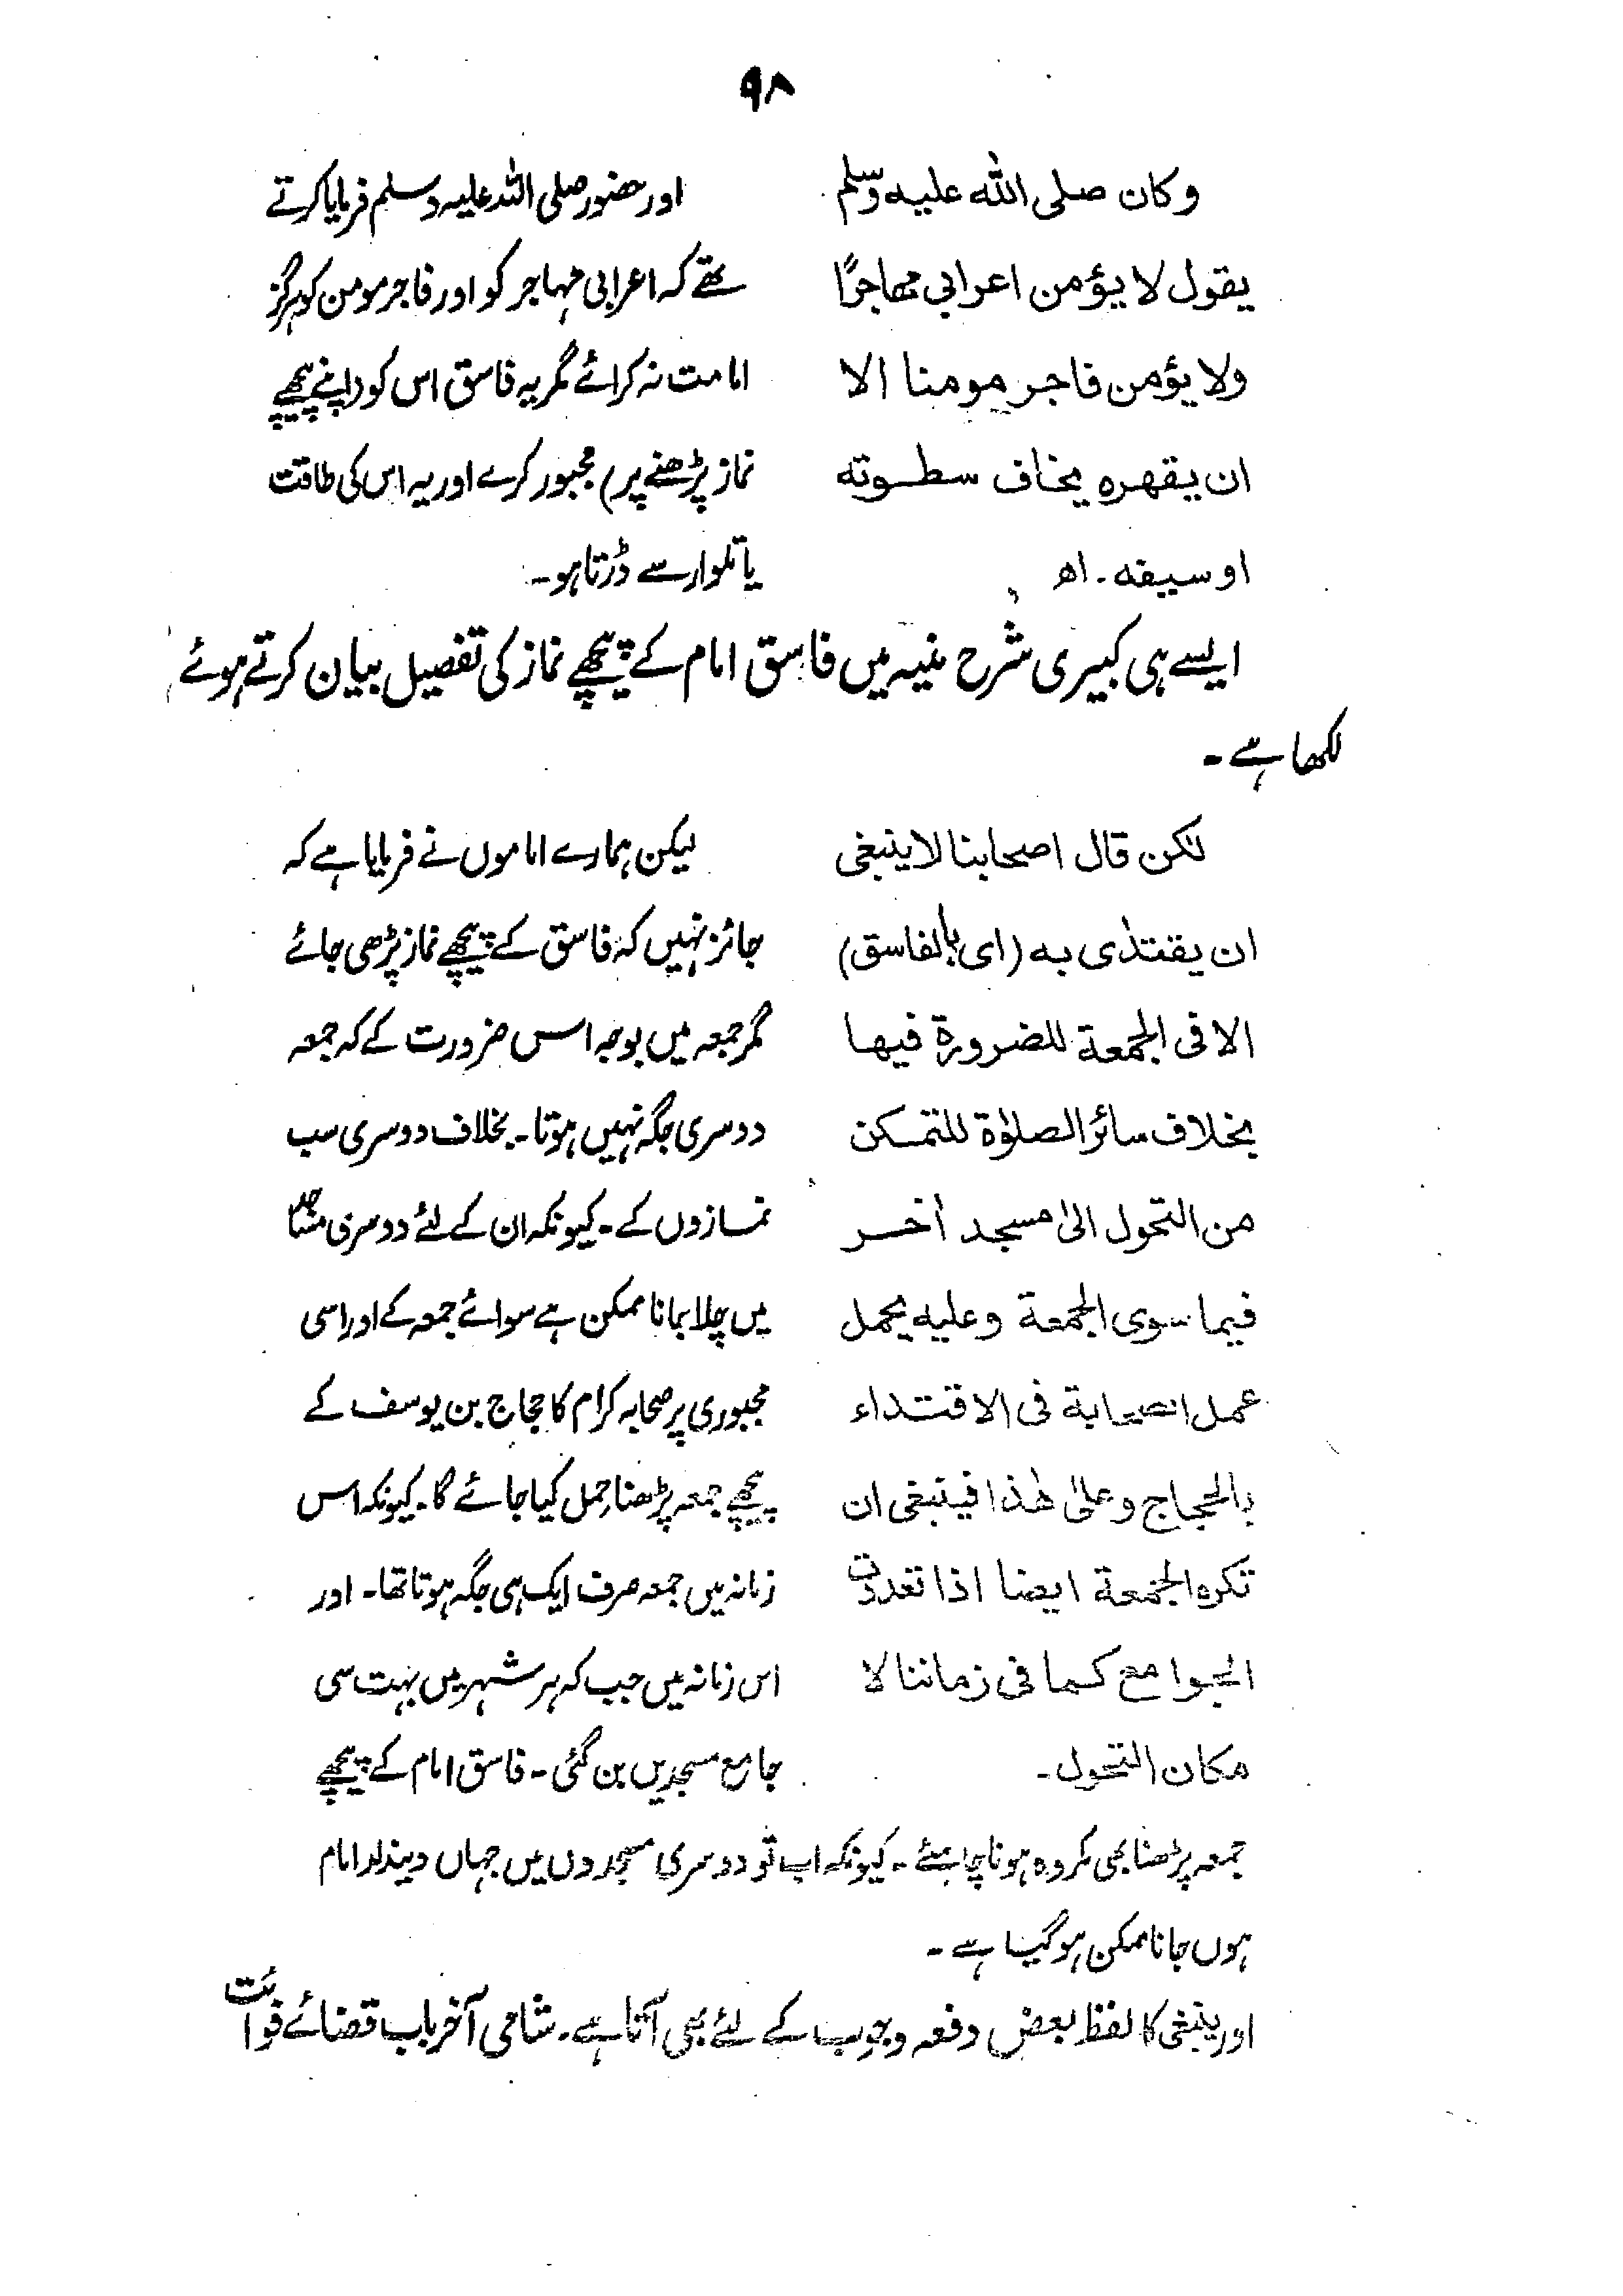 ۹۸
وكان صلى الله عليه وسلم
يقول لا يؤمن اعرابي مهاجرًا
ولا يؤمن فاجر مومنا الا
ان يقهره يخاف سطوته
او سيفه ـ اھ
اور حضور صلی اللہ علیہ وسلم فرمایا کرتے
تھے کہ اعرابی مہاجر کو اور فاجر مومن کو ہرگز
امامت نہ کرائے مگر یہ فاسق اس کو (اپنے پیچھے
نماز پڑھنے پر) مجبور کرے اور یہ اس کی طاقت
یا تلوار سے ڈرتا ہو۔
ایسے ہی کبیری شرح منیہ میں فاسق امام کے پیچھے نماز کی تفصیل بیان کرتے ہوئے
لکھا ہے ۔
لكن قال اصحابنا لا ينبغى
ان يقتدى به (اى بالفاسق)
الا فى الجمعة للضرورة فيها
بخلاف سائر الصلوٰة للتمكن
من التحول الىٰ مسجد اٰخر
فيما سوى الجمعة وعليه يحمل
عمل الصحابة فى الاقتداء
بالحجاج وعلىٰ هٰذا فينبغى ان
تكره الجمعة ايضا اذا تعددت
الجوامع كما فى زماننا لا
مكان التحول ۔
لیکن ہمارے اماموں نے فرمایا ہے کہ
جائز نہیں کہ فاسق کے پیچھے نماز پڑھی جائے
مگر جمعہ میں بوجہ اس ضرورت کے کہ جمعہ
دوسری جگہ نہیں ہوتا۔ بخلاف دوسری سب
نمازوں کے ۔ کیونکہ ان کے لئے دوسری مساجد
میں چلا جانا ممکن ہے سوائے جمعہ کے اور اسی
مجبوری پر صحابہ کرام کا حجاج بن یوسف کے
پیچھے جمعہ پڑھنا حمل کیا جائے گا۔ کیونکہ اس
زمانہ میں جمعہ صرف ایک ہی جگہ ہوتا تھا۔ اور
اس زمانہ میں جب کہ ہر شہر میں بہت سی
جامع مسجدیں بن گئی ۔ فاسق امام کے پیچھے
جمعہ پڑھنا بھی مکروہ ہونا چاہئے ۔ کیونکہ اب تو دوسری مسجدوں میں جہاں دیندار امام
ہوں جانا ممکن ہو گیا ہے ۔
اور ینبغی کا لفظ بعض دفعہ وجوب کے لئے بھی آتا ہے۔ شامی آخر باب قضائے فوائت